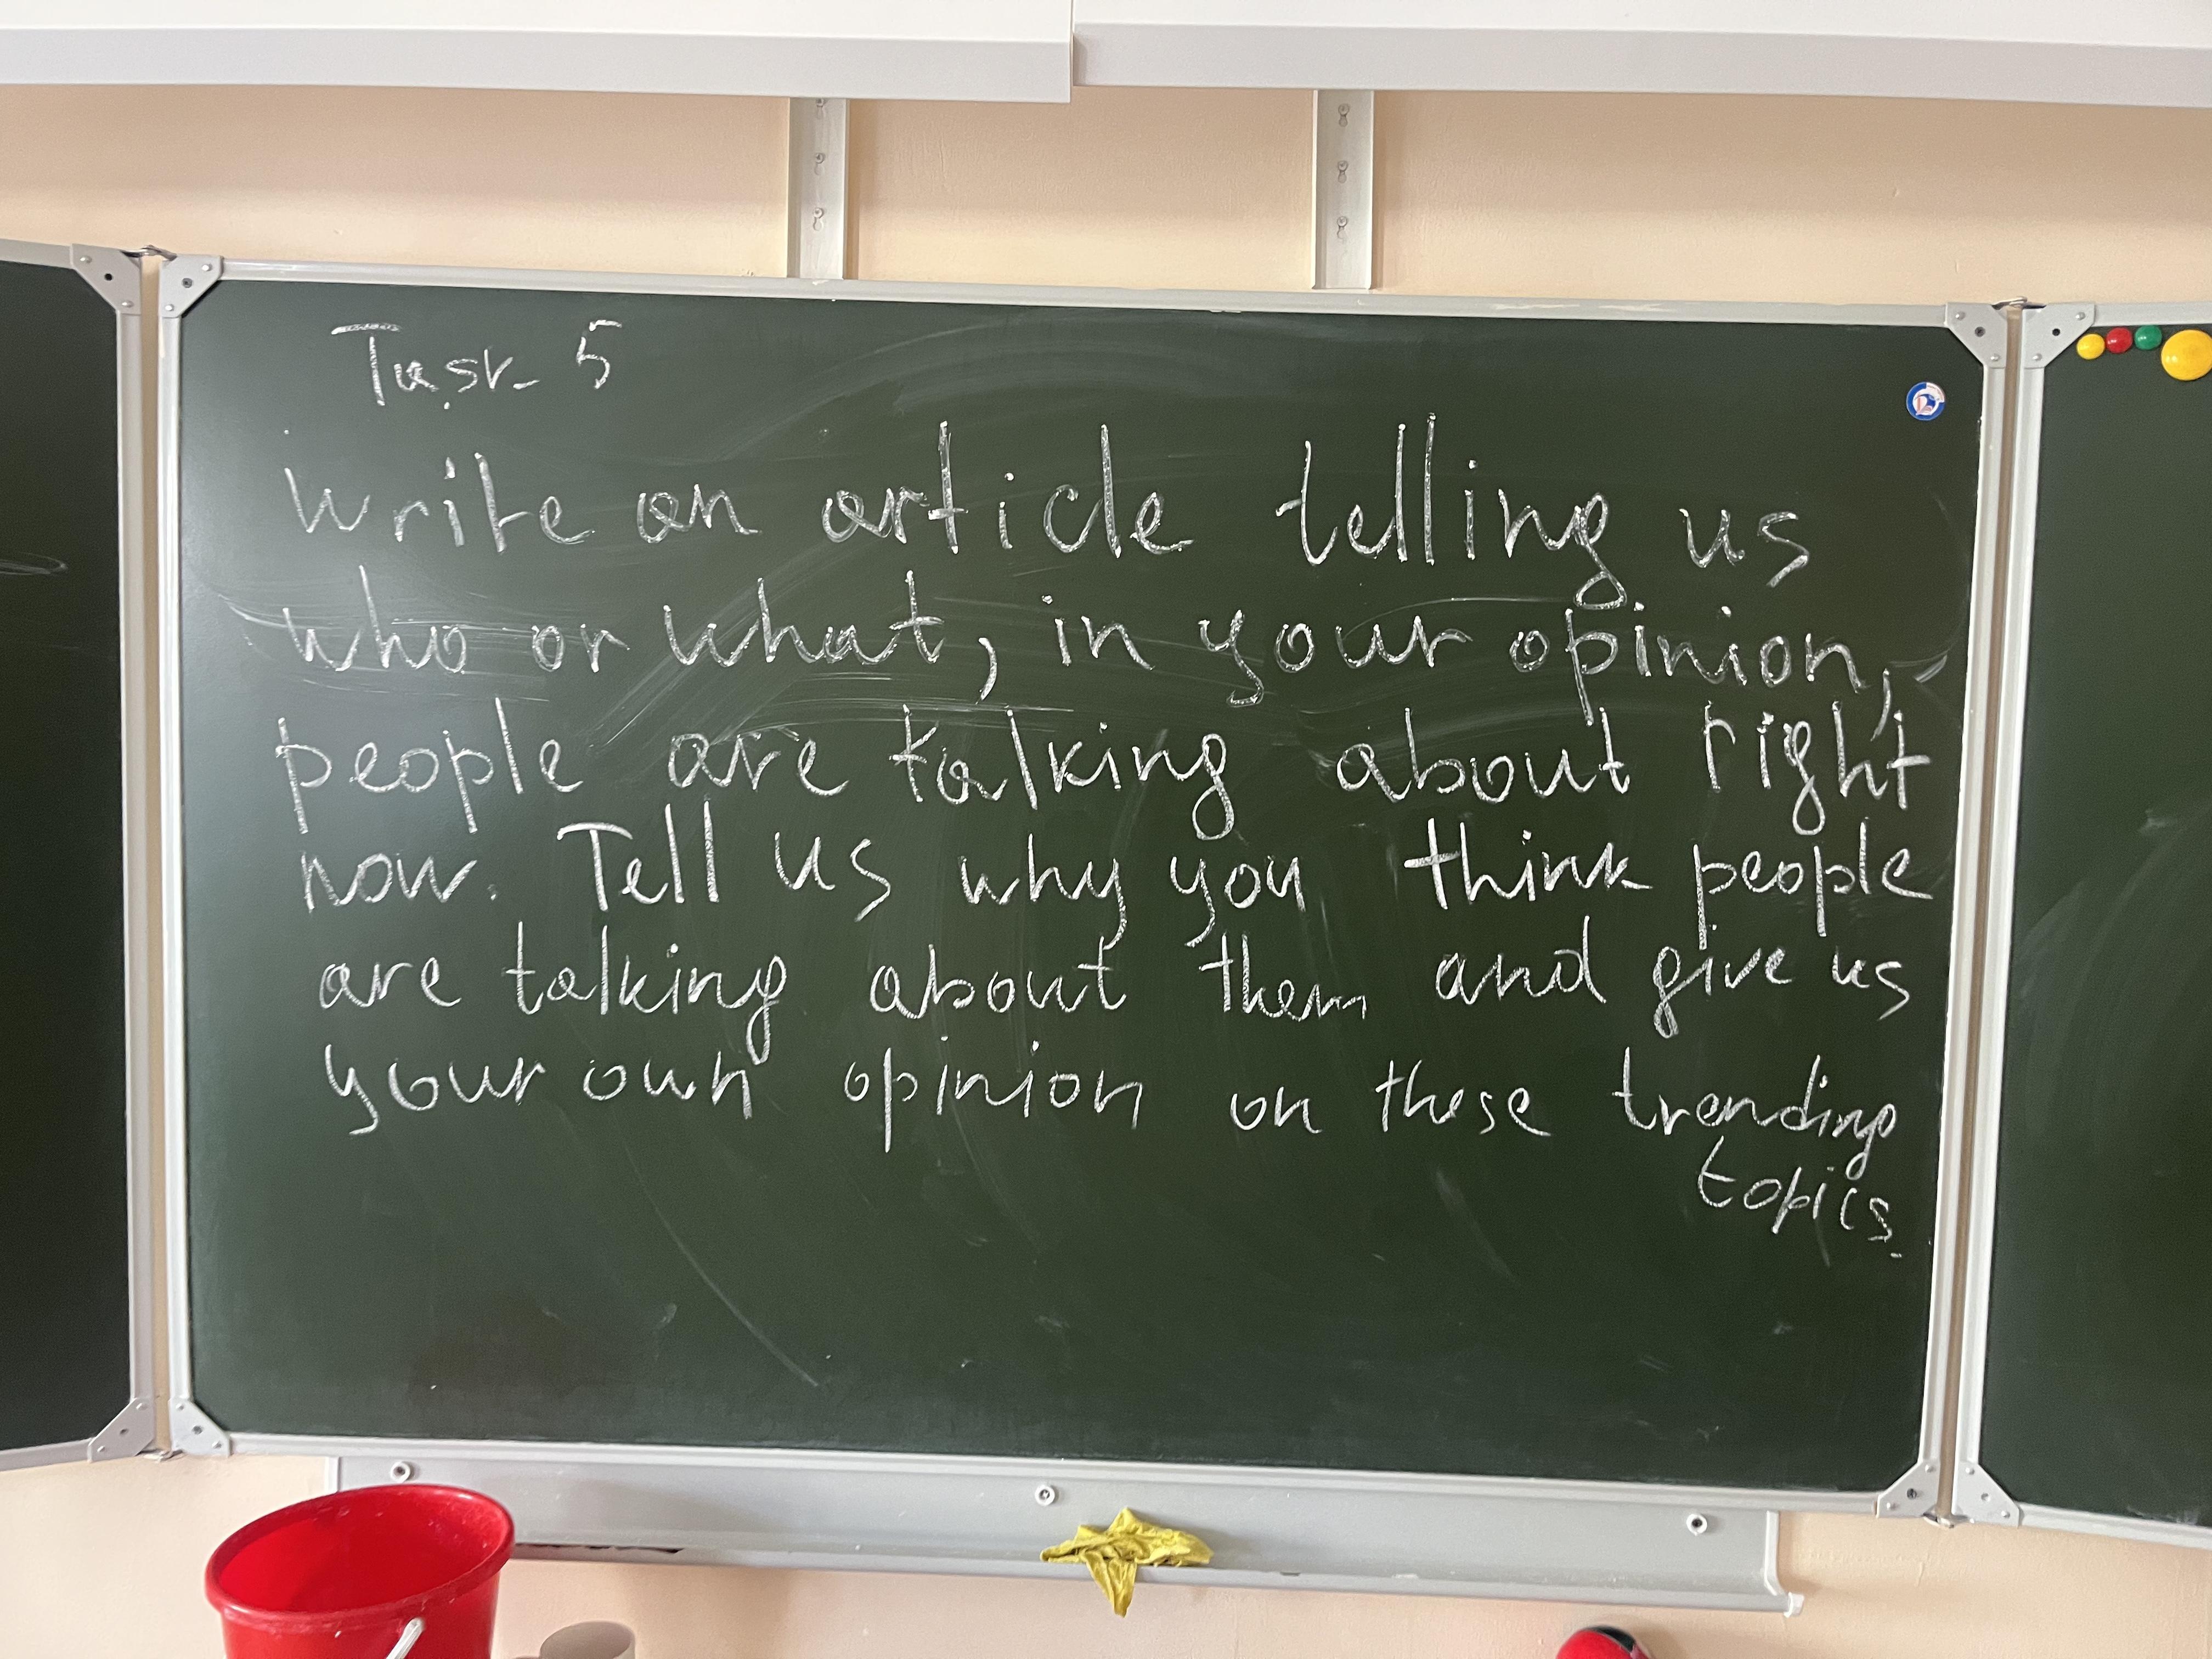 Task 5
Write an article telling us
who or what, in your opinion,
people are talking about right
now. Tell us why you think people
are talking about them and give us
your own opinion on these trending
topics.